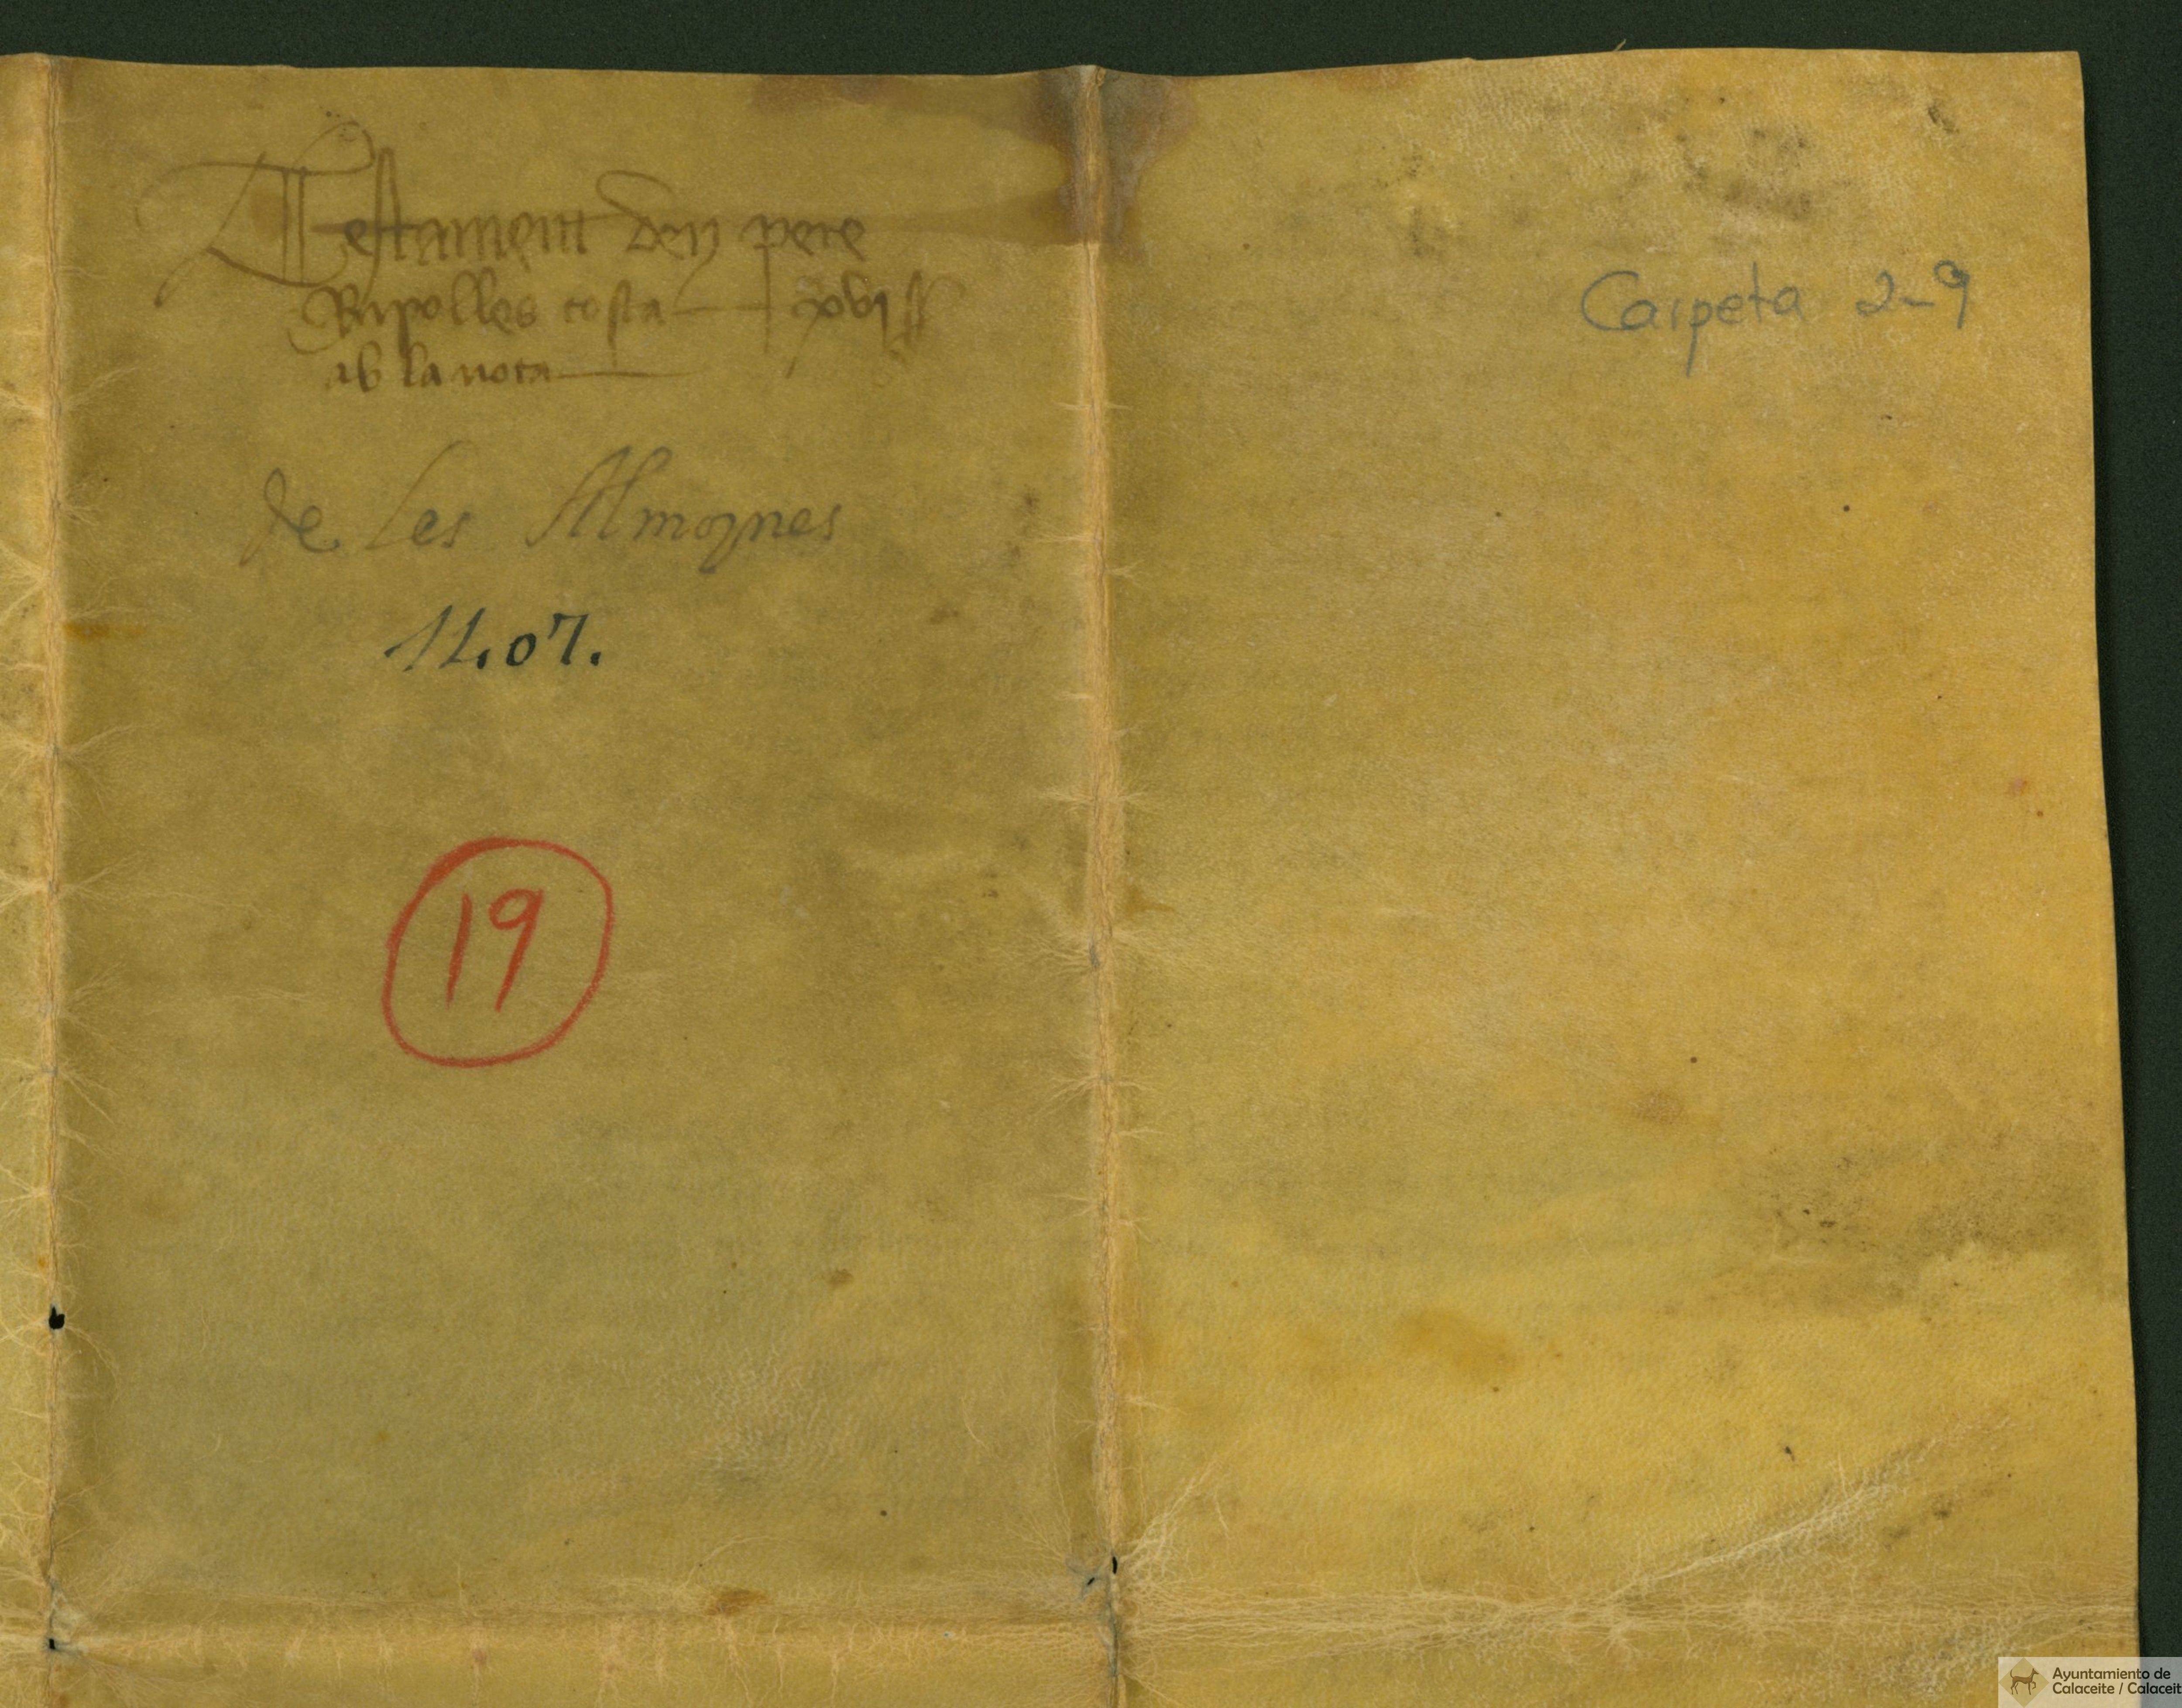 Testament den pere
Ripolles costa xvi ss
ab la nota
de Les Almoynes
1407.
19
Carpeta 2-9
Ayuntamiento de
Calaceite / Calaceit